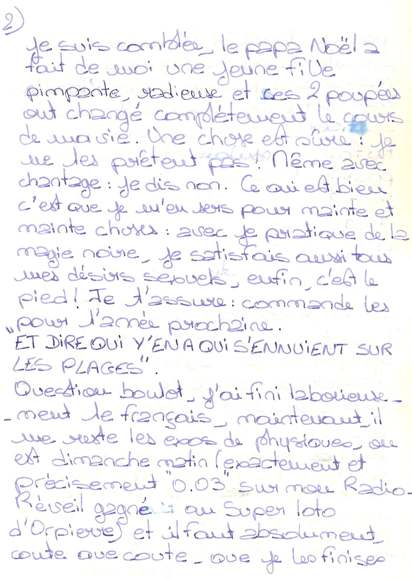 2)
Je suis comblée, le papa Noël a
fait de moi une jeune fille
pimpante, radieuse et ces 2 poupées
ont changé complètement le cours
de ma vie. Une chose est sûre : je
ne les prêterai pas. Même avec
chantage : je dis non. Ce qui est bien
c'est que je m'en sers pour mainte et
mainte choses : avec je pratique de la
magie noire, je satisfais aussi tous
mes désirs sexuels, enfin, c'est le
pied! Je t'assure : commande les
pour l'année prochaine.
"ET DIRE QUI Y'EN A QUI S'ENNUIENT SUR
LES PLAGES".
Question boulot, j'ai fini laborieuse-
-ment le français, maintenant il
me reste les exos de physiques, on
est dimanche matin (exactement et
précisement "0.03" sur mon Radio-
Réveil gagné au Super Loto
d'Orpierre) et il faut absolument,
coute que coute, que je les finisse